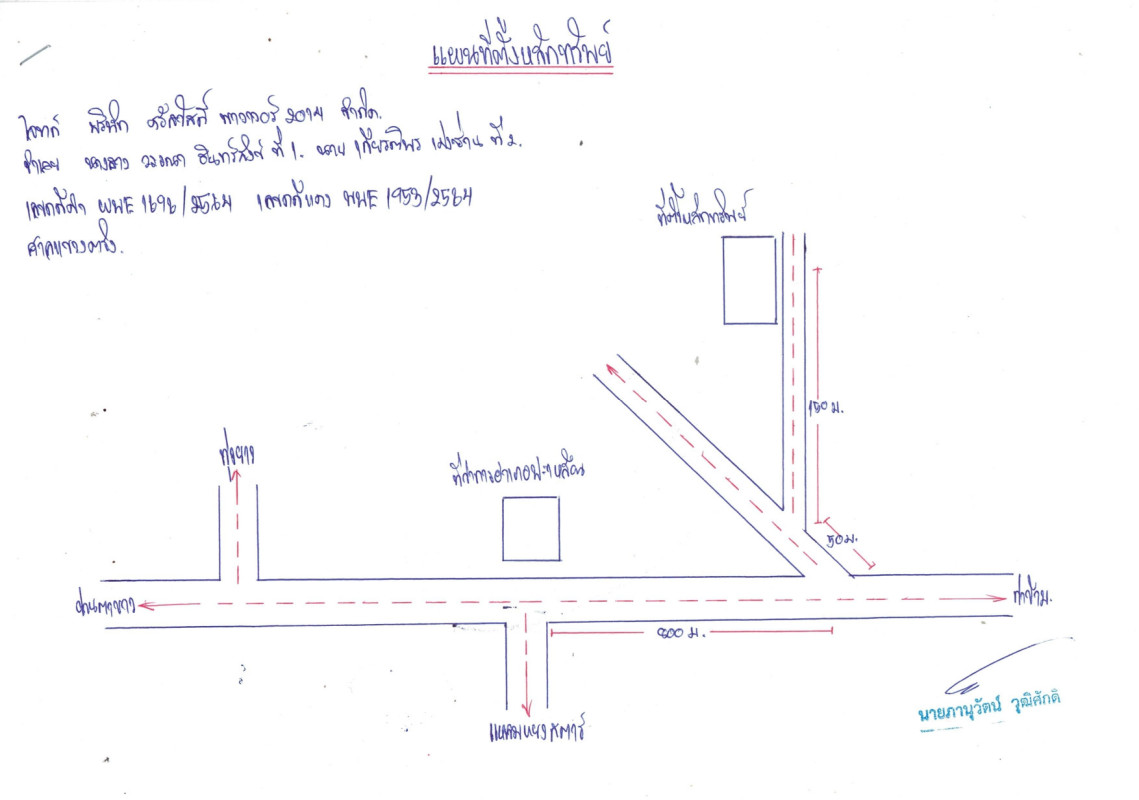 แผนที่ตั้งหลักทรัพย์
โจทก์ บริษัท พาวเวอร์ 2014 จำกัด.
จำเลย นางสาว วรรณา อินทร์สังข์ ที่ 1. นาย เกียรติพร ที่ 2.
เลขคดีดำ ผบE 1696/2564 เลขคดีแดง ผบE 1953/2564
ศาลแขวงตรัง.
ที่ตั้งหลักทรัพย์
150 ม.
ทุ่งยาว
ที่ว่าการอำเภอปะเหลียน
50 ม.
ย่านตาขาว
ท่าข้าม.
800 ม.
แหลมหยงสตาร์
นายภานุวัตน์ วุฒิศักดิ์